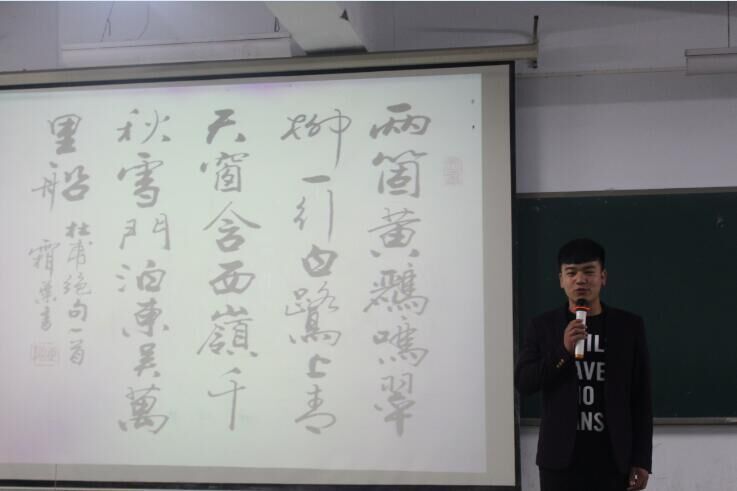 兩箇黃鸝鳴翠
柳一行白鷺上青
天窗含西嶺千
秋雪門泊東吳萬
里船
杜甫絕句一首
霜葉書
IL
AVE
IO
ANS